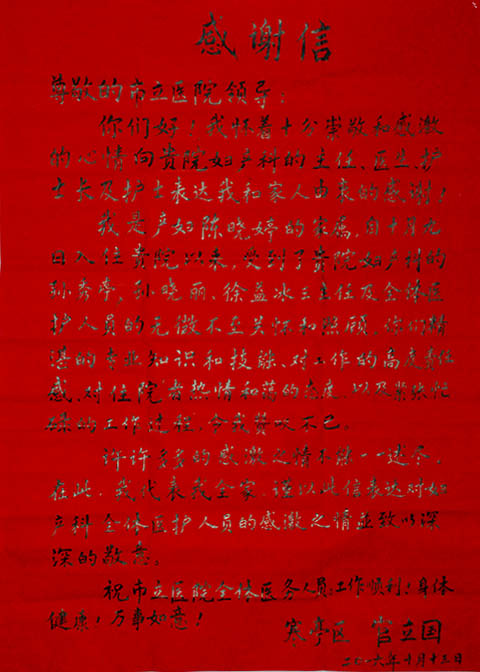 感谢信
尊敬的市立医院领导：
你们好！我怀着十分崇敬和感激
的心情向贵院妇产科的主任、医生、护
士长及护士表达我和家人由衷的感谢！
我是产妇陈晓婷的家属，自十月九
日入住贵院以来，受到了贵院妇产科的
孙秀亭，孙晓丽、徐益冰三主任及全体医
护人员的无微不至关怀和照顾，你们精
湛的专业知识和技能、对工作的高度责任
感、对住院者热情和蔼的态度，以及紧张忙
碌的工作过程，令我赞叹不已。
许许多多的感激之情不能一一述尽，
在此，我代表我全家，谨以此信表达对妇
产科全体医护人员的感激之情並致以深
深的敬意。
祝市立医院全体医务人员：工作顺利！身体
健康！万事如意！
寒亭区 官立国
二〇一六年十月十三日